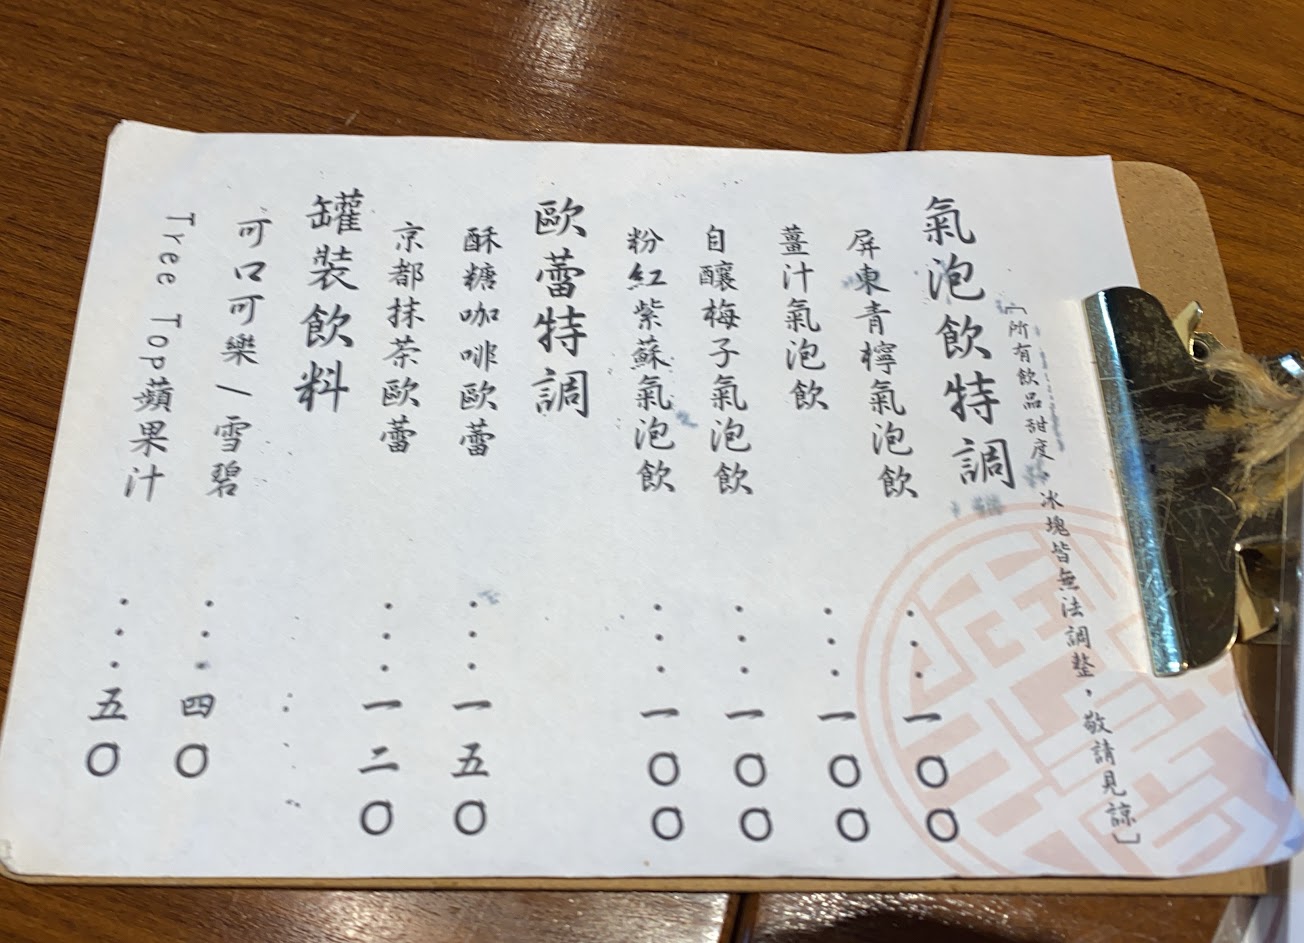 「所有飲品甜度，冰塊皆無法調整，敬請見諒」
氣泡飲特調
屏東青檸氣泡飲...一〇〇
薑汁氣泡飲...一〇〇
自釀梅子氣泡飲...一〇〇
粉紅紫蘇氣泡飲...一〇〇
歐蕾特調
酥糖咖啡歐蕾...一五〇
京都抹茶歐蕾...一二〇
罐裝飲料
可口可樂/雪碧...四〇
Tree Top蘋果汁...五〇